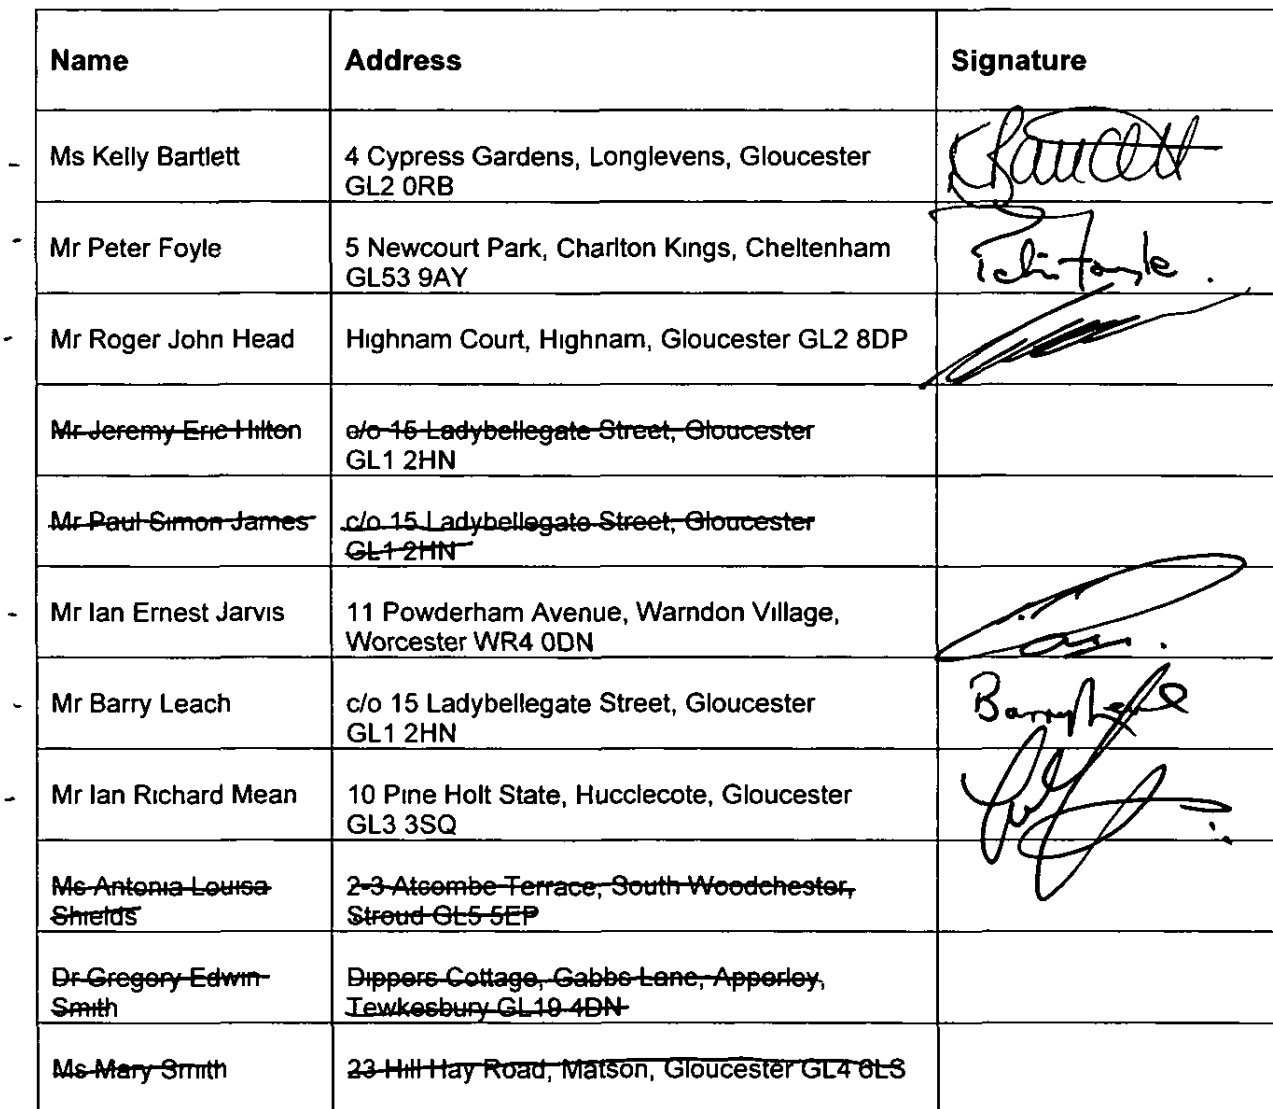 Name Address Signature
Ms Kelly Bartlett 4 Cypress Gardens, Longlevens, Gloucester
GL2 0RB
Mr Peter Foyle 5 Newcourt Park, Charlton Kings, Cheltenham
GL53 9AY
Mr Roger John Head Highnam Court, Highnam, Gloucester GL2 8DP
Mr Jeremy Eric Hilton c/o 15 Ladybellegate Street, Gloucester
GL1 2HN
Mr Paul Simon James c/o 15 Ladybellegate Street, Gloucester
GL1 2HN
Mr Ian Ernest Jarvis 11 Powderham Avenue, Warndon Village,
Worcester WR4 0DN
Mr Barry Leach c/o 15 Ladybellegate Street, Gloucester Barry
GL1 2HN
Mr Ian Richard Mean 10 Pine Holt State, Hucclecote, Gloucester
GL3 3SQ
Ms Antonia Louisa 2-3 Atcombe Terrace, South Woodchester,
Shields Stroud GL5 5EP
Dr Gregory Edwin Dippers Cottage, Gabbs Lane, Apperley,
Smith Tewkesbury GL19 4DN
Ms Mary Smith 23 Hill Hay Road, Matson, Gloucester GL4 6LS